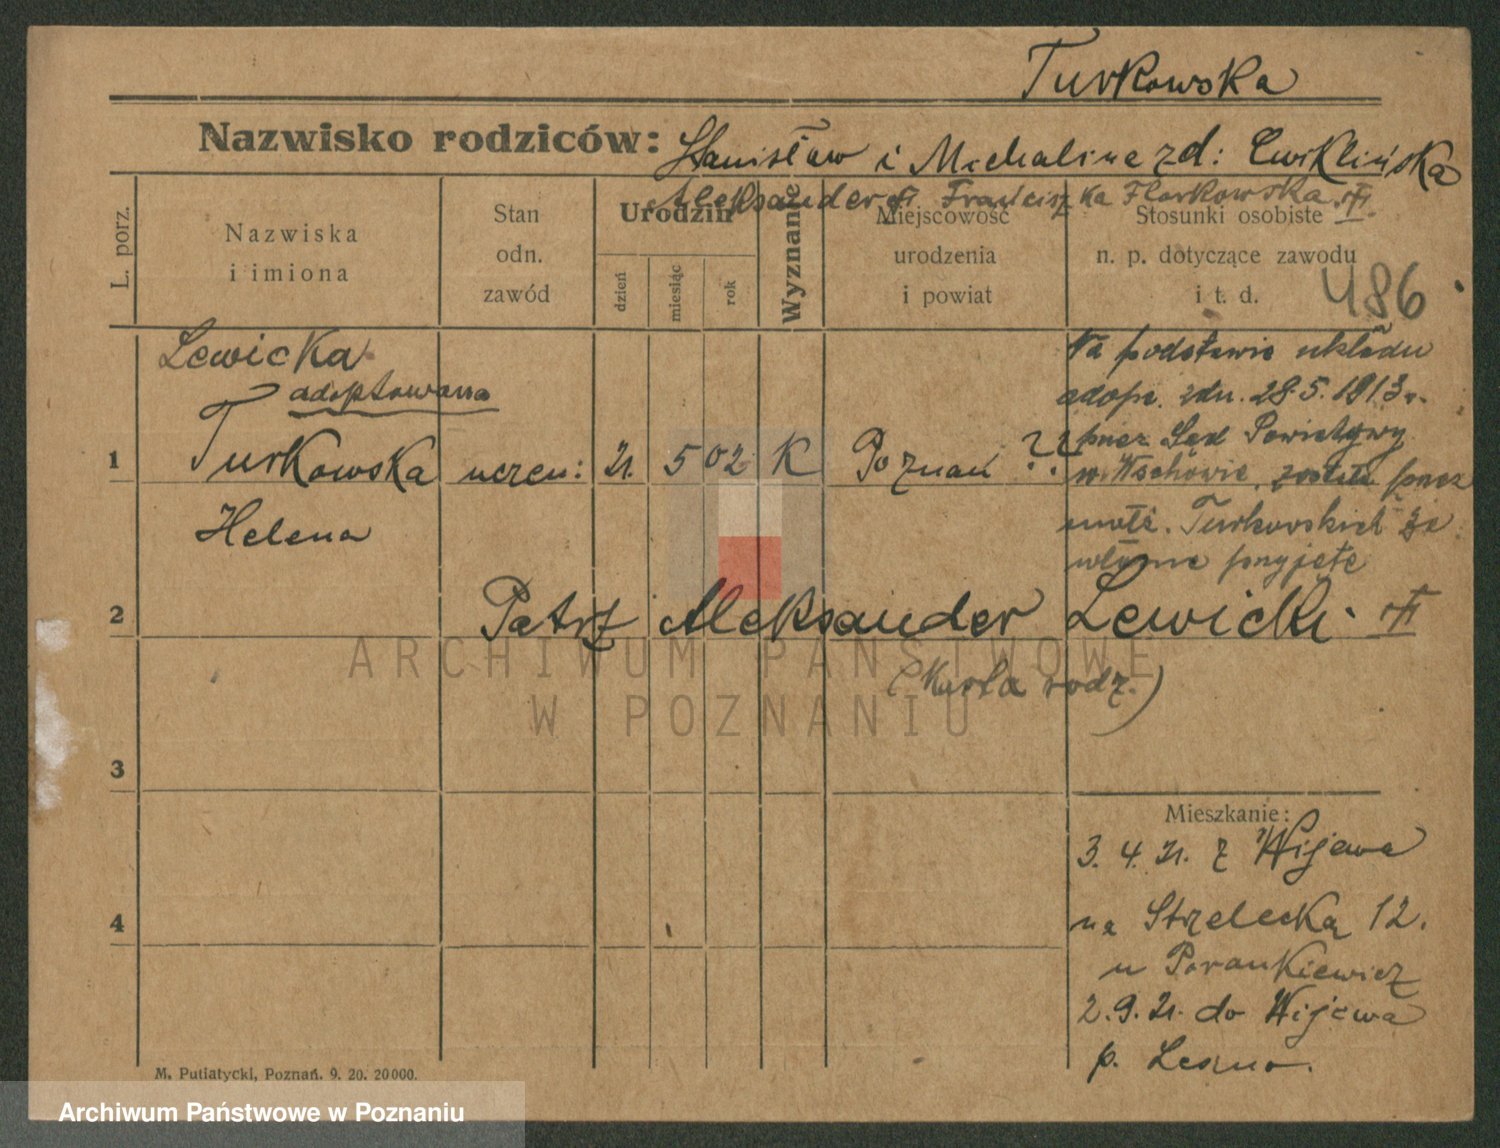 Turkowska
Nazwisko rodziców: Stanisław i Michalina zd: Ćwiklińska
Aleksander Franciszka Florkowska
L. porz.
Nazwiska
i imiona
Stan
odn.
zawód
Urodzin
dzień
miesiąc
rok
Wyznanie
Miejscowość
urodzenia
i powiat
Stosunki osobiste
n. p. dotyczące zawodu
i t. d.
486
Lewicka
adoptowana
1 Turkowska uczen: 21. 5 02 K Poznań ??
Helena
Na podstawie układu
adopc. zdn. 28.5.1913r.
przez Sąd Powiatowy
w Wschowie, została przez
małż. Turkowskich za
własne przyjęte
2 Patrz Aleksander Lewicki
(Karta rodz.)
3
4
Mieszkanie:
3. 4. 21. z Wijewa
na Strzelecką 12.
u Porankiewicz
2. 9. 21. do Wijewa
p. Leszno.
M. Putiatycki, Poznań. 9. 20. 20000.
ARCHIWUM PAŃSTWOWE
W POZNANIU
Archiwum Państwowe w Poznaniu